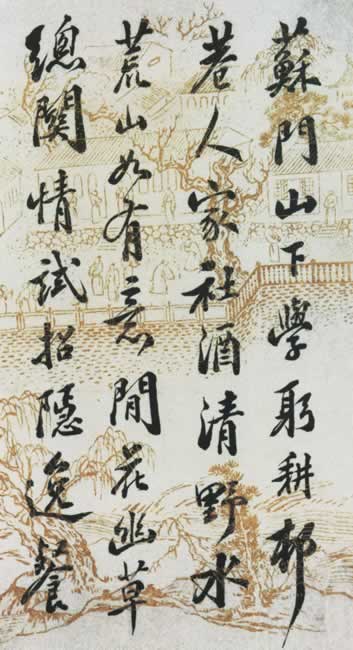 蘇門山下學躬耕邨
巷人家社酒清野水
荒山如有意閒花幽草
總關情試招隱逸餐